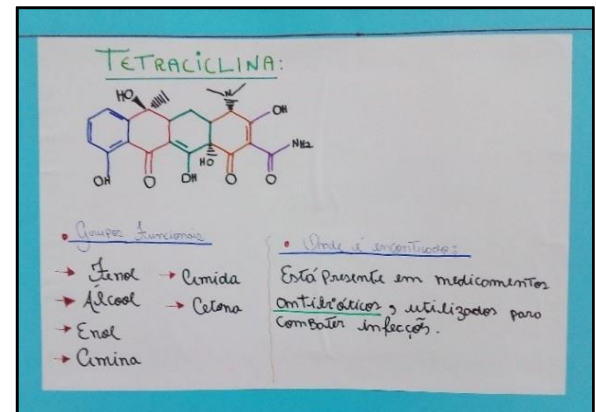 TETRACICLINA:
HO
N
OH
NH₂
HO
OH
O
OH
O
O
• Grupos Funcionais
→ Fenol → Amida
→ Álcool → Cetona
→ Enol
→ Amina
• Onde é encontrado:
Está Presente em medicamentos
antibióticos, utilizados para
combater infecção.